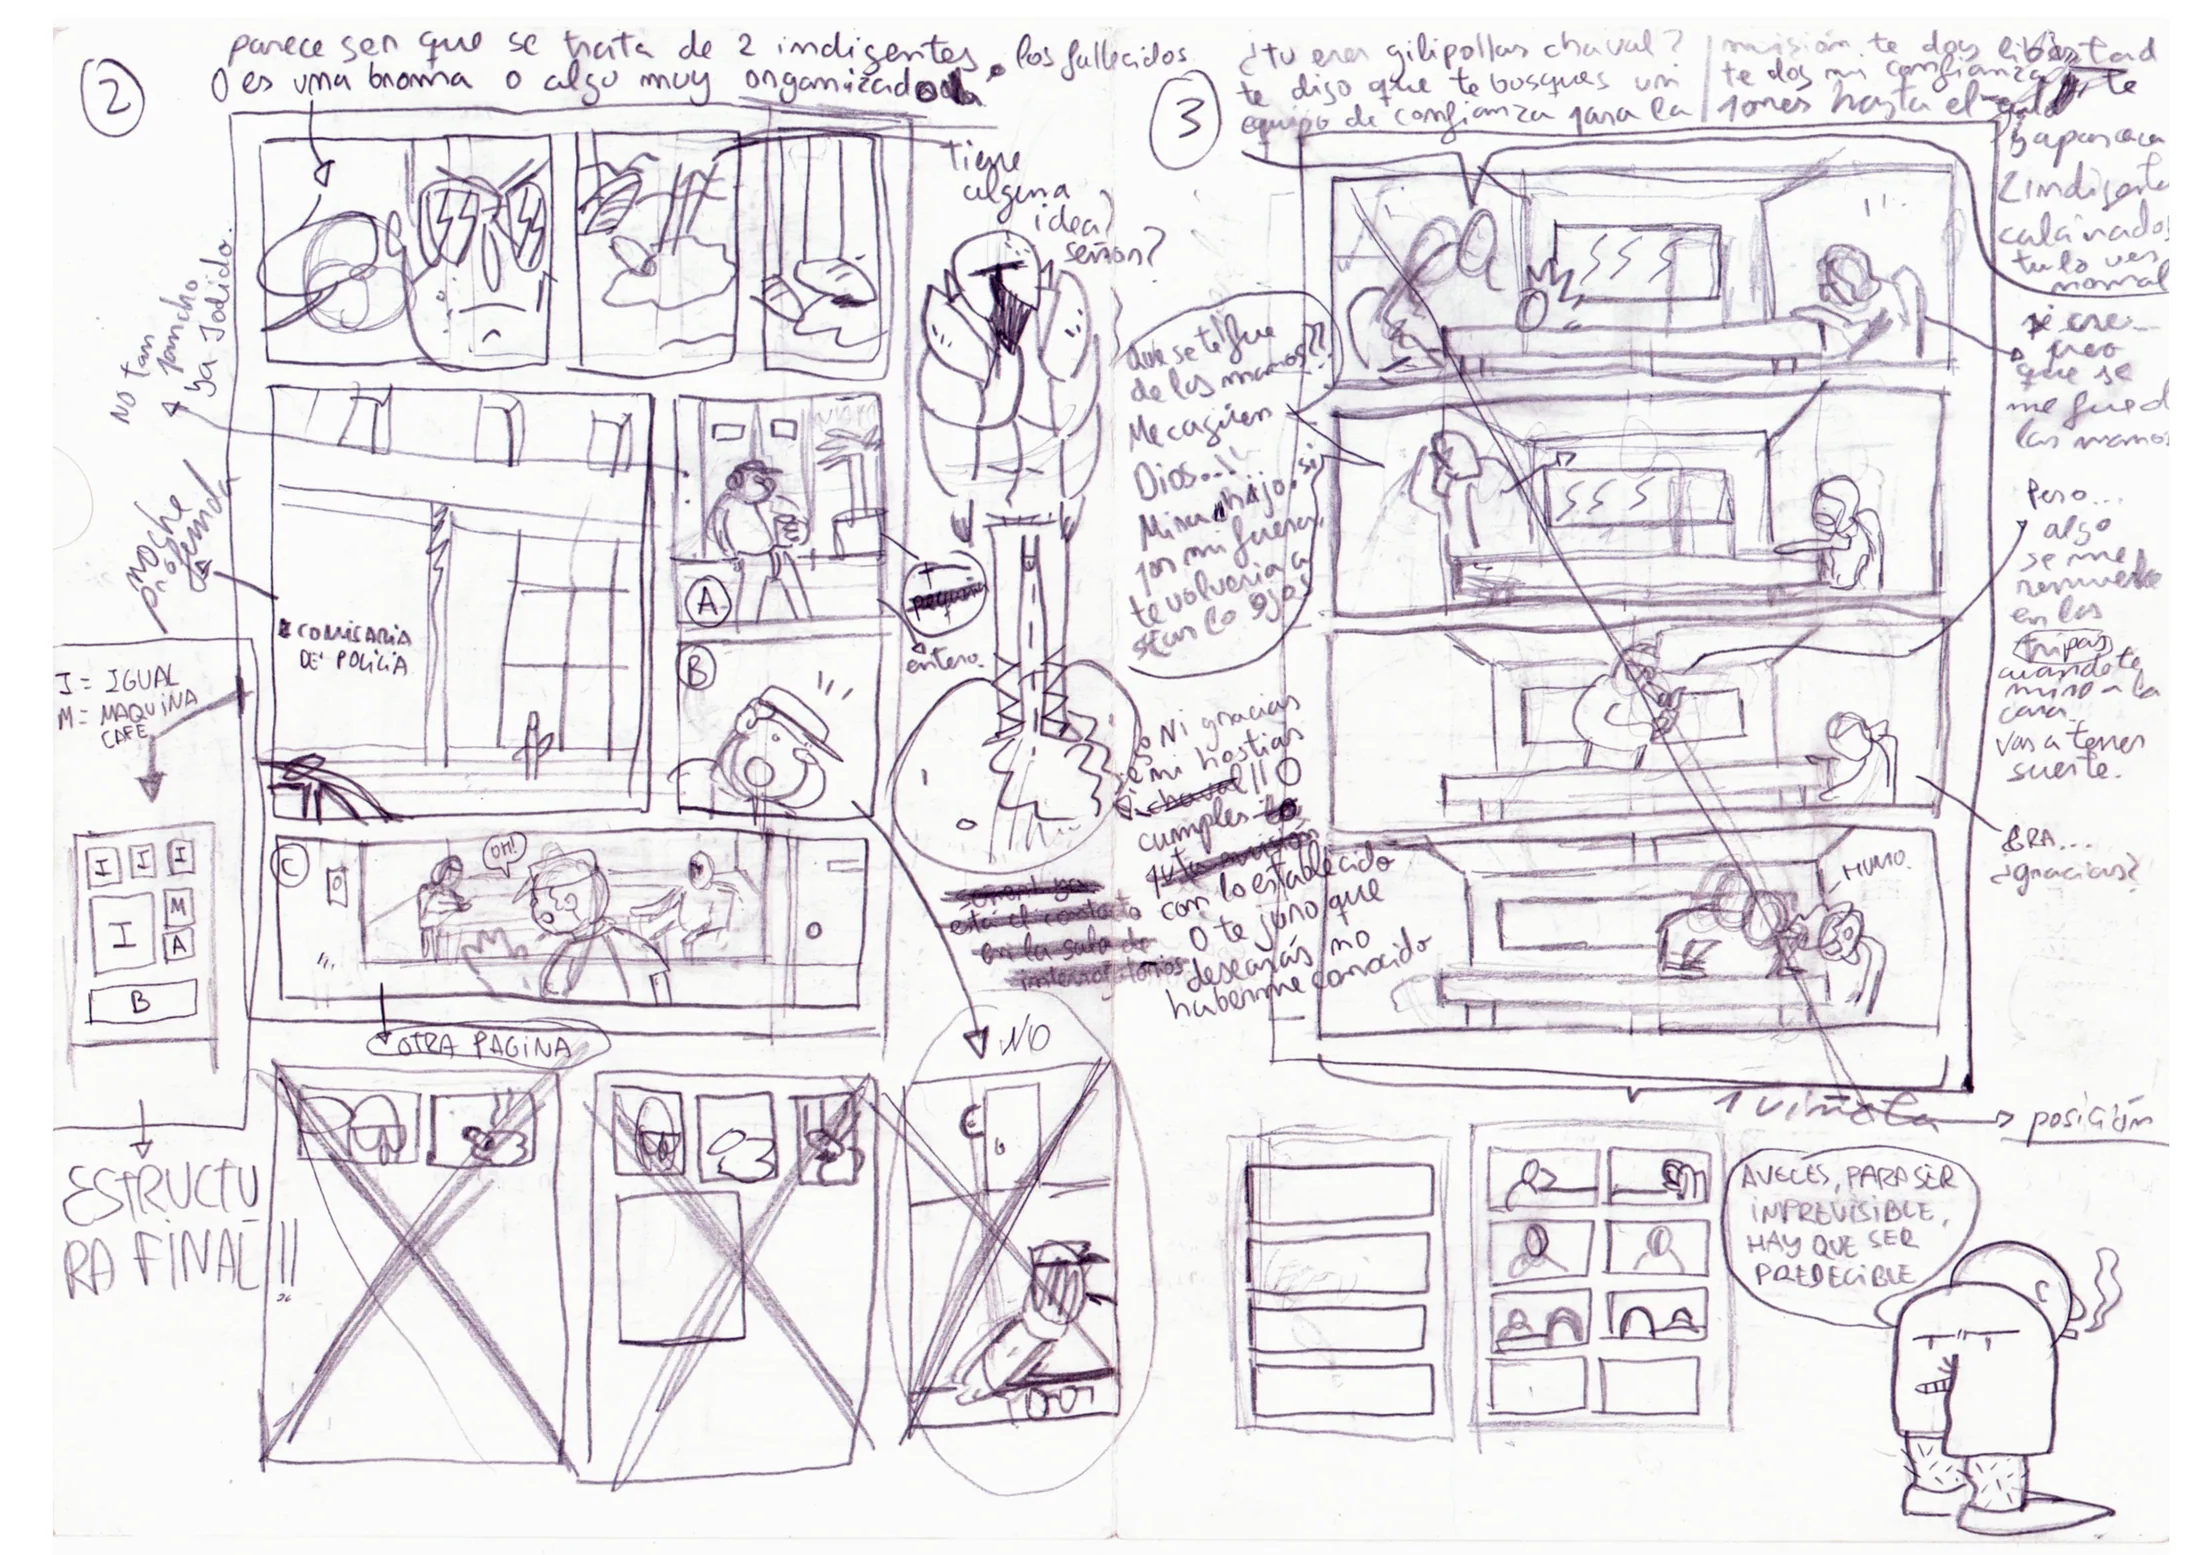 2
parece ser que se trata de 2 indigentes los fallecidos
O es una broma o algo muy organizado
tiene
alguna
idea?
señor?
No tan
pancho
ya Jodido.
noche
profunda
COMISARIA
DE POLICIA
A
B
entero.
I = IGUAL
M = MAQUINA
CAFE
I I I
I M
A
B
ESTRUCTU
RA FINAL!!
C
OH!
OTRA PAGINA
NO
está el contacto
en la sala de
interrogatorios
3
¿tu eres gilipollas chaval?
te digo que te busques un
equipo de confianza para la
misión te doy libertad
te doy mi confianza
y aparecen
2 indigentes
calcinados
tu lo ves
normal
Que se te fue
de las manos??
Me cagüen
Dios..!!
Mira hijo, si
por mi fuera,
te volveria a
sacar los ojos
creo
que se
me fue de
las manos
Pero...
algo
se me
remueve
en las
tripas
cuando te
miro a la
cara.
vas a tener
suerte.
Ni gracias
ni hostias
chaval!! O
cumples
con lo establecido
O te juro que
desearás no
haberme conocido
ERA...
¿gracias?
HUMO.
1 viñeta
posición
AVECES, PARA SER
IMPREVISIBLE,
HAY QUE SER
PREDECIBLE